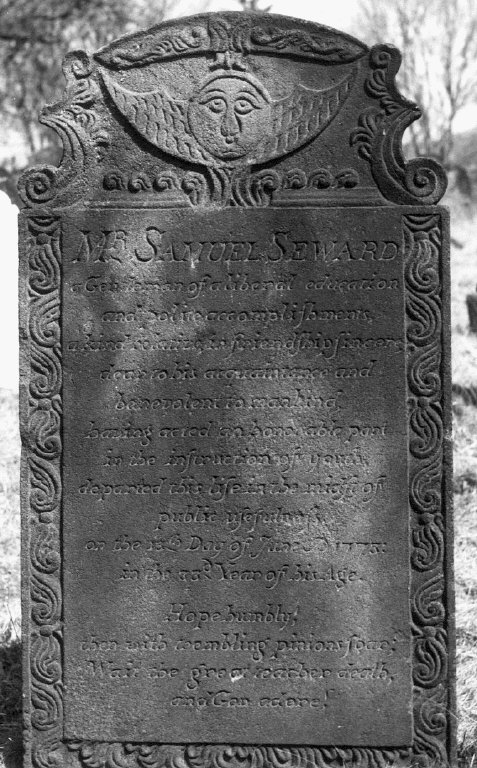 Mr. SAMUEL SEWARD
a Gentleman of a liberal education
and polite accomplishments,
a kind relative, in friendship sincere
dear to his acquaintance and
benevolent to mankind,
having acted an honorable part
in the instruction of youth,
departed this life in the midst of
public usefulness,
on the Day of June
in the Year of his Age.
Hope humbly!
then with trembling pinions soar!
Wait the great teacher death,
and God adore!